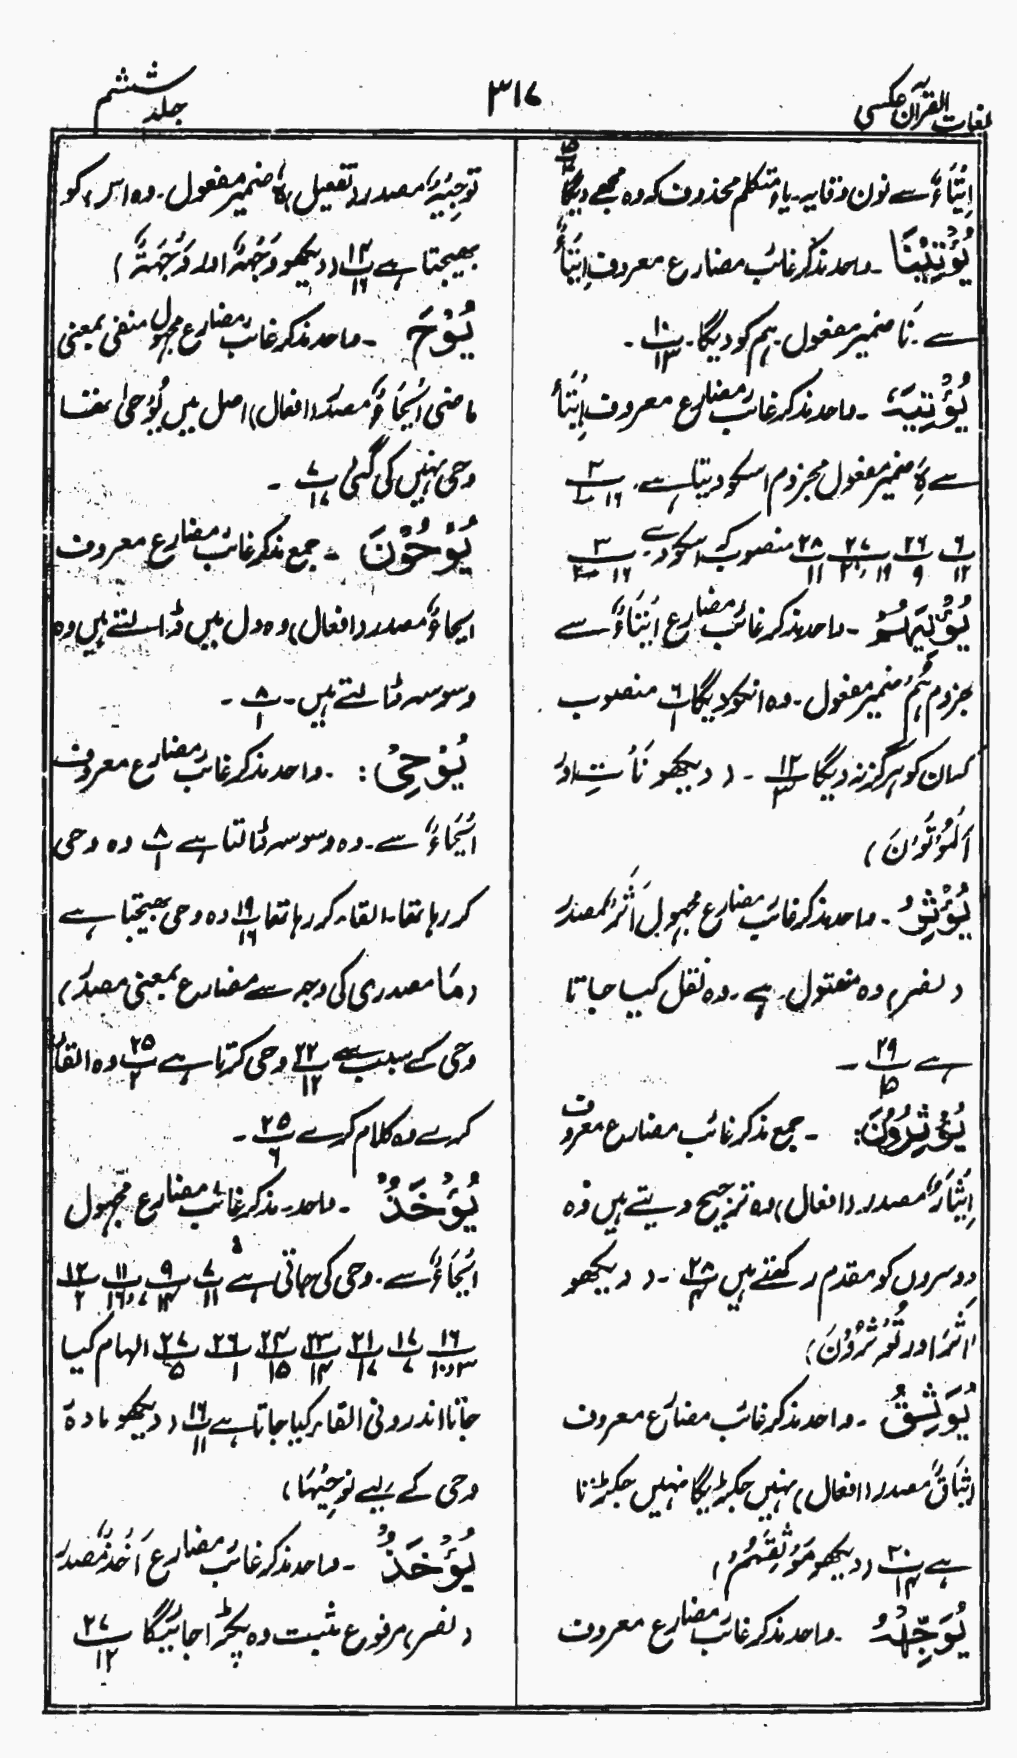 لغات القرآن عکسی
۳۱۷
جلد ششم
اِیْتَاءٌ سے نون وقایہ۔ یاء متکلم محذوف کہ وہ مجھے دیگا ۱۵
یُؤْتِیَنَا ۔ واحد مذکر غائب مضارع معروف اِیْتَاءٌ
سے ۔ نَا ضمیر مفعول۔ ہم کو دیگا۔ ۱۰/۱۳ ۔
یُؤْتِیَہٗ ۔ واحد مذکر غائب مضارع معروف اِیْتَاءٌ
سے ہٗ ضمیر مفعول مجزوم اسکو دیتا ہے۔ ۳/۱۶
۶/۱۲ ۲۶/۹ ۲۷/۱۹ ۲۸/۱۱ منصوب کہ اسکو دے ۳/۱۶
یُؤْتِیَہُمْ ۔ واحد مذکر غائب مضارع اِیْتَاءٌ سے
مجزوم ہُمْ ضمیر مفعول۔ وہ انکو دیگا ۶/۱ منصوب
کہ ان کو ہرگز نہ دیگا ۱۲/۳ ۔ (دیکھو نَأْتِ اور
اَلْمُؤْتُوْنَ)
یُؤْثَرُ ۔ واحد مذکر غائب مضارع مجہول اَثْرٌ مصدر
(نصر) وہ منقول ہے۔ وہ نقل کیا جاتا
ہے ۲۹/۱۵ ۔
یُؤْثِرُوْنَ: ۔ جمع مذکر غائب مضارع معروف
اِیْثَارٌ مصدر (افعال) وہ ترجیح دیتے ہیں وہ
دوسروں کو مقدم رکھتے ہیں ۲۸/۴ ۔ (دیکھو
اٰثَرَ اور تُؤْثِرُوْنَ)
یُوْثِقُ ۔ واحد مذکر غائب مضارع معروف
اِیْثَاقٌ مصدر (افعال) نہیں جکڑیگا نہیں جکڑتا
ہے ۳۰/۱۴ (دیکھو مَوْثِقَہُمْ)
یُوَجِّہْہُ ۔ واحد مذکر غائب مضارع معروف
تَوْجِیْہٌ مصدر (تفعیل) ہٗ ضمیر مفعول۔ وہ اس کو
بھیجتا ہے ۱۴/۱۶ (دیکھو وَجْہَہٗ اور وِجْہَۃٌ)
یُوْحَ ۔ واحد مذکر غائب مضارع مجہول منفی بمعنی
ماضی اِیْحَاءٌ مصدر (افعال) اصل میں یُوْحٰی تھا
وحی نہیں کی گئی ۷/۱۷ ۔
یُوْحُوْنَ ۔ جمع مذکر غائب مضارع معروف
ایحاءٌ مصدر (افعال) وہ دل میں ڈالتے ہیں وہ
وسوسہ ڈالتے ہیں۔ ۸/۱ ۔
یُوْحِیْ: ۔ واحد مذکر غائب مضارع معروف
اِیْحَاءٌ سے۔ وہ وسوسہ ڈالتا ہے ۸/۱ وہ وحی
کر رہا تھا۔ القاء کر رہا تھا ۱۹/۱۶ وہ وحی بھیجتا ہے
(مَا مصدری کی وجہ سے مضارع بمعنی مصدر)
وحی کے سبب سے ۲۲/۱۲ وحی کرتا ہے ۲۵/۲ وہ القاء
کرے وہ کلام کرے ۲۵/۶ ۔
یُؤْخَذُ ۔ واحد مذکر غائب مضارع مجہول
اِیْحَاءٌ سے۔ وحی کی جاتی ہے ۷/۱۱ ۹/۱۴ ۱۱/۱۶،۷ ۱۲/۲
۱۶/۱۰،۳ ۱۷/۷ ۲۱/۱۷ ۲۳/۱۴ ۲۴/۱۵ ۲۶/۱ ۲۷/۵ الہام کیا
جاتا اندرونی القاء کیا جاتا ہے ۱۶/۱۱ (دیکھو مادہ
وحی کے لیے نُوْحِیْہَا)
یُؤْخَذُ ۔ واحد مذکر غائب مضارع اَخْذٌ مصدر
(نصر) مرفوع مثبت وہ پکڑا جائیگا ۲۷/۱۲